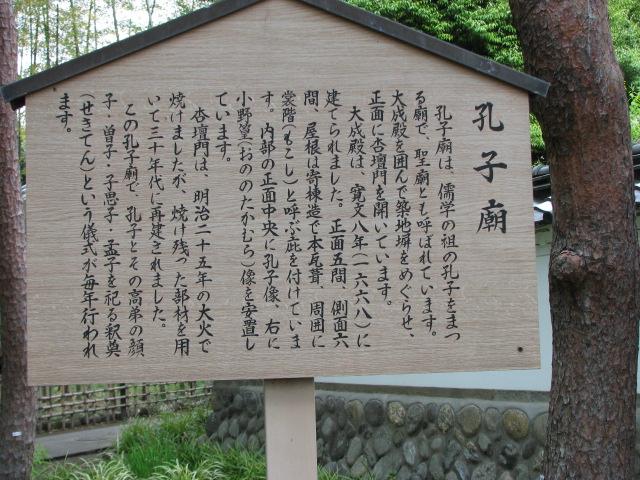 孔子廟
孔子廟は、儒学の祖の孔子をまつ
る廟で、聖廟とも呼ばれています。
大成殿を囲んで築地塀をめぐらせ、
正面に杏壇門を開いています。
大成殿は、寛文八年(一六六八)に
建てられました。正面五間、側面六
間、屋根は寄棟造で本瓦葺、周囲に
裳階(もこし)と呼ぶ庇を付けていま
す。内部の正面中央に孔子像、右に
小野篁(おののたかむら)像を安置し
ています。
杏壇門は、明治二十五年の大火で
焼けましたが、焼け残った部材を用
いて三十年代に再建されました。
この孔子廟で、孔子とその高弟の顔
子・曽子・子思子・孟子を祀る釈奠
(せきてん)という儀式が毎年行われ
ます。